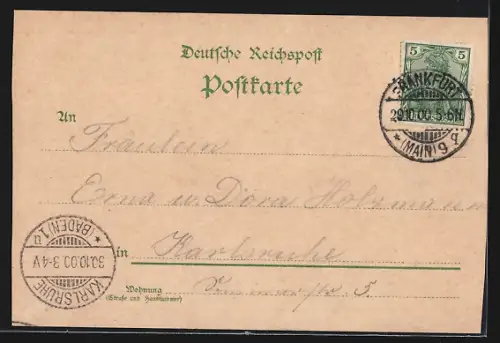 Deutsche Reichspost
Postkarte
5 5
FRANKFURT
29.10.00.5-6N.
* (MAIN) 9 g.
An
Fräulein
Erna u. Dora Holzmann
in Karlsruhe
KARLSRUHE
30.10.00.3-4V
* (BADEN) 1 u
Wohnung
(Straße und Hausnummer)
5.